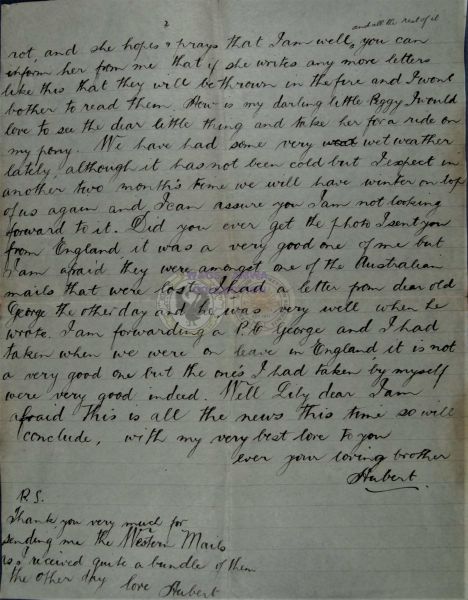 2
and all the rest of it
rot, and she hopes & prays that I am well, you can
inform her from me that if she writes any more letters
like this that they will be thrown in the fire and I wont
bother to read them. How is my darling little Peggy I would
love to see the dear little thing and take her for a ride on
my pony. We have had some very wet weather
lately, although it has not been cold but I expect in
another two month's time we will have winter on top
of us again and I can assure you I am not looking
forward to it. Did you ever get the photo I sent you
from England, it was a very good one of me but
I am afraid they were amongst one of the Australian
mails that were lost. I had a letter from dear old
George the other day and he was very well when he
wrote. I am forwarding a P.C. George and I had
taken when we were on leave in England, it is not
a very good one but the one's I had taken by myself
were very good indeed. Well Lily dear I am
afraid this is all the news this time so will
conclude, with my very best love to you
ever your loving brother
Hubert.
P.S.
Thank you very much for
sending me the Western Mails
as I received quite a bundle of them
the other day love Hubert